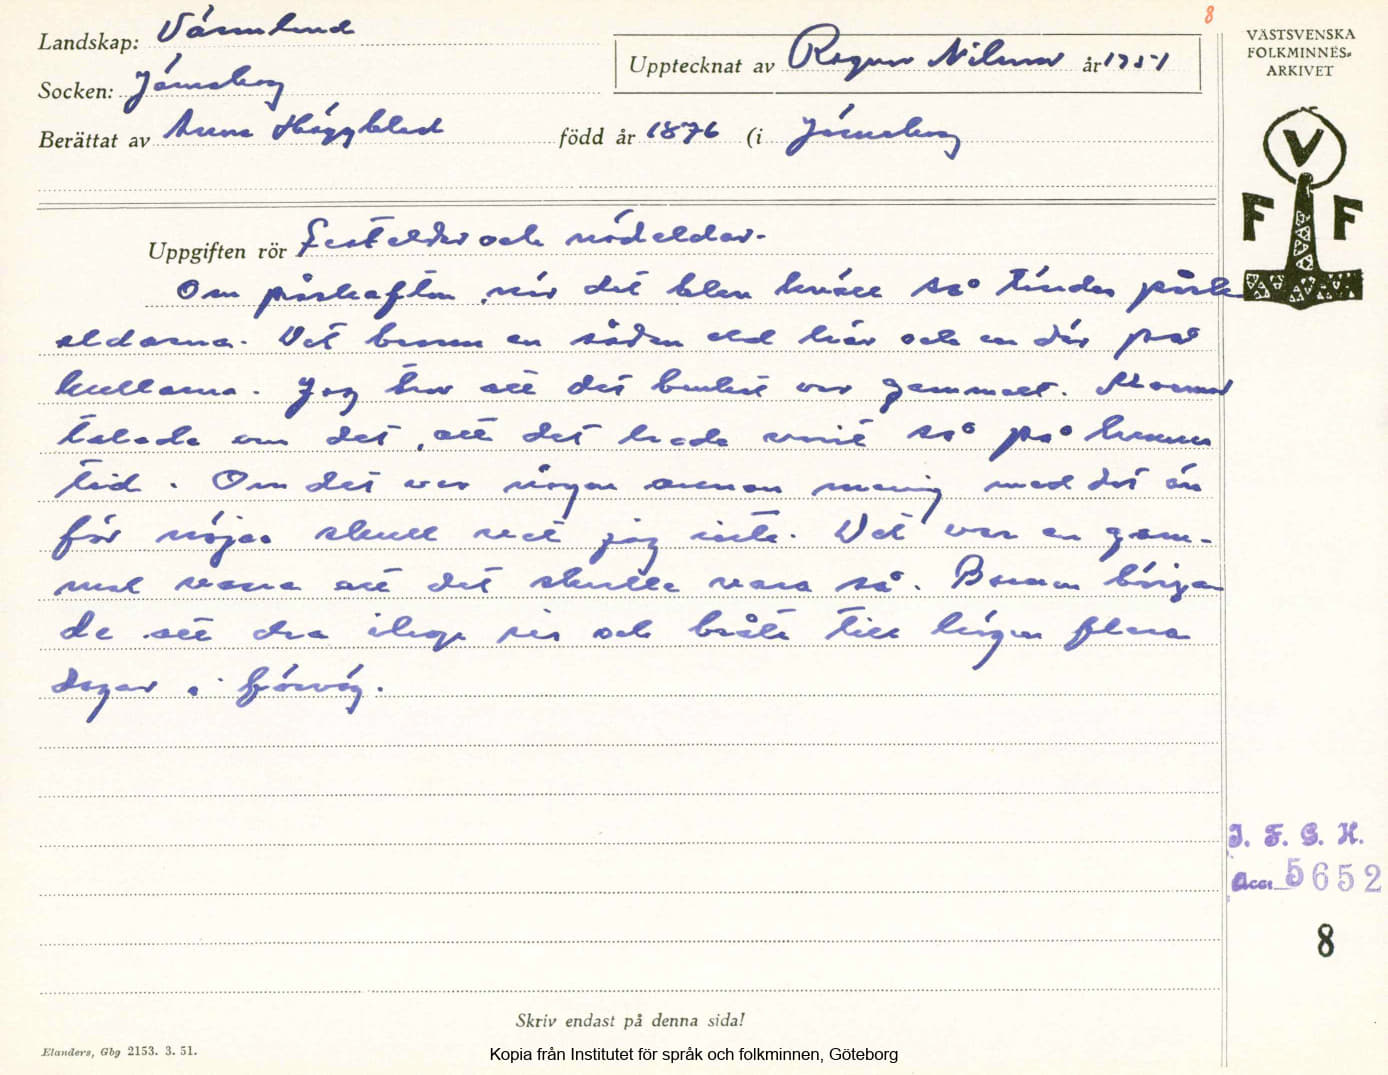 8
Landskap: Värmland
Upptecknat av Ragnar Nilsson år 1951
Socken: Järnskog
Berättat av Anna Häggblad född år 1876 (i Järnskog
VÄSTSVENSKA
FOLKMINNES-
ARKIVET
V
F F
Uppgiften rör Festeldar och nödeldar.
Om påskafton, när det blev kväll så tändes påsk
eldarna. Det brann en sådan eld här och en där på
kullarna. Jag tror att det bruket var gammalt. Mormor
talade om det, att det hade varit så på hennes
tid. Om det var någon annan mening med det än
för nöjes skull vet jag inte. Det var en gam-
mal vana att det skulle vara så. Barnen börja
de att dra ihop ris och bråte till högen flera
dagar i förväg.
I. F. G. H.
Acc. 5652
8
Skriv endast på denna sida!
Elanders, Gbg 2153. 3. 51.
Kopia från Institutet för språk och folkminnen, Göteborg